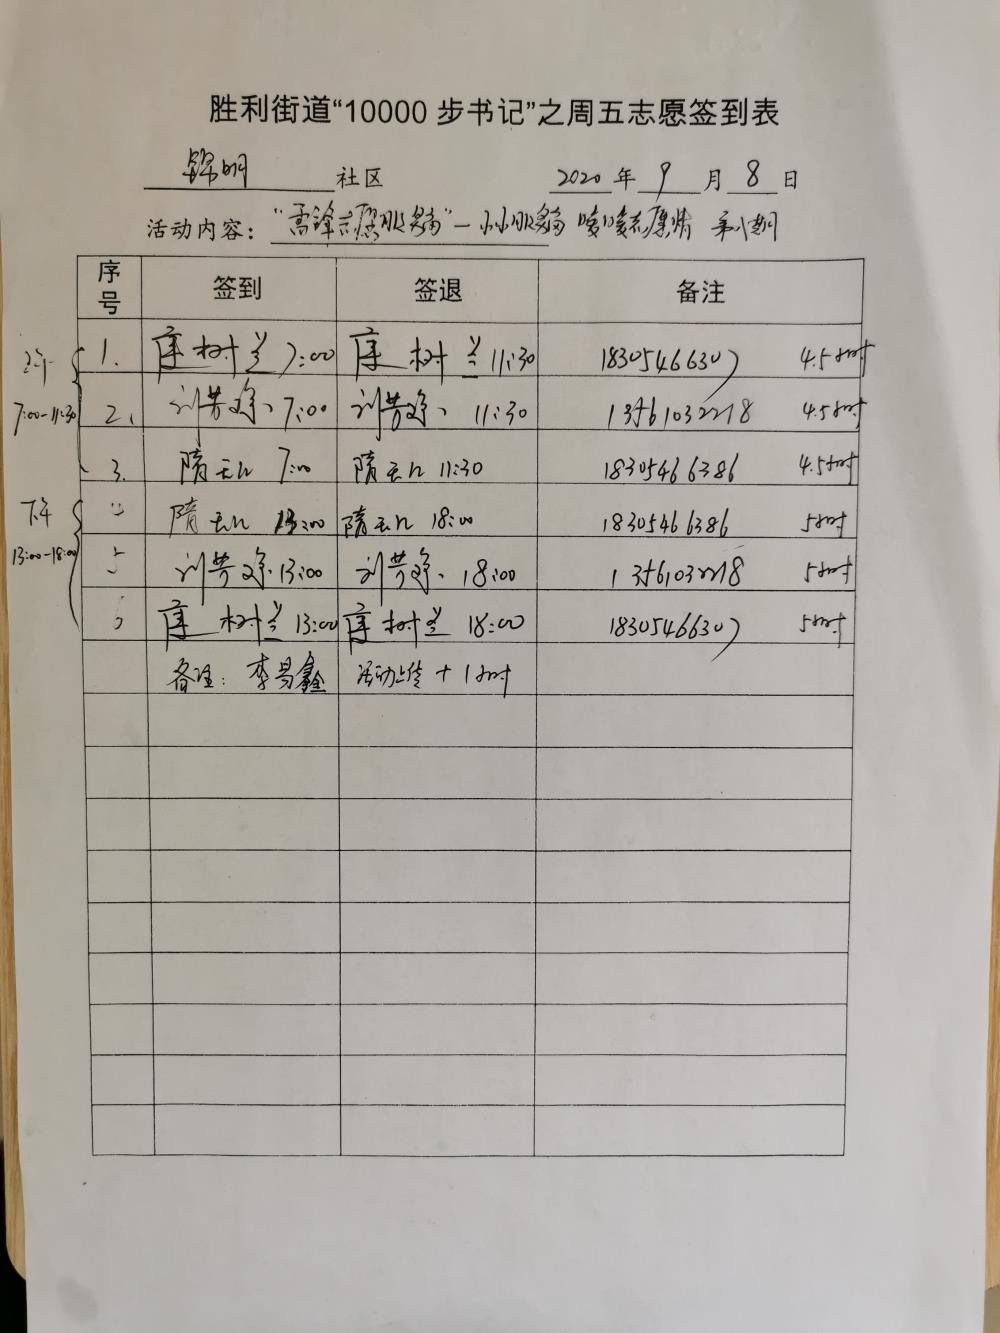 胜利街道“10000 步书记”之周五志愿签到表
锦明 社区 2020 年 9 月 8 日
活动内容： “雷锋志愿服务岗”一小小服务岗 暖暖志愿情 第八期
序号 签到 签退 备注
上午 7:00-11:30
1. 树兰 7:00 树兰 11:30 18305466307 4.5小时
2. 刘芳 7:00 刘芳 11:30 13561032218 4.5小时
3. 隋 7:00 隋 11:30 18305466386 4.5小时
下午 13:00-18:00
4 隋 13:00 隋 18:00 18305466386 5小时
5 刘芳 13:00 刘芳 18:00 13561032218 5小时
6 树兰 13:00 树兰 18:00 18305466307 5小时
备注：李易鑫 活动上传 + 1小时